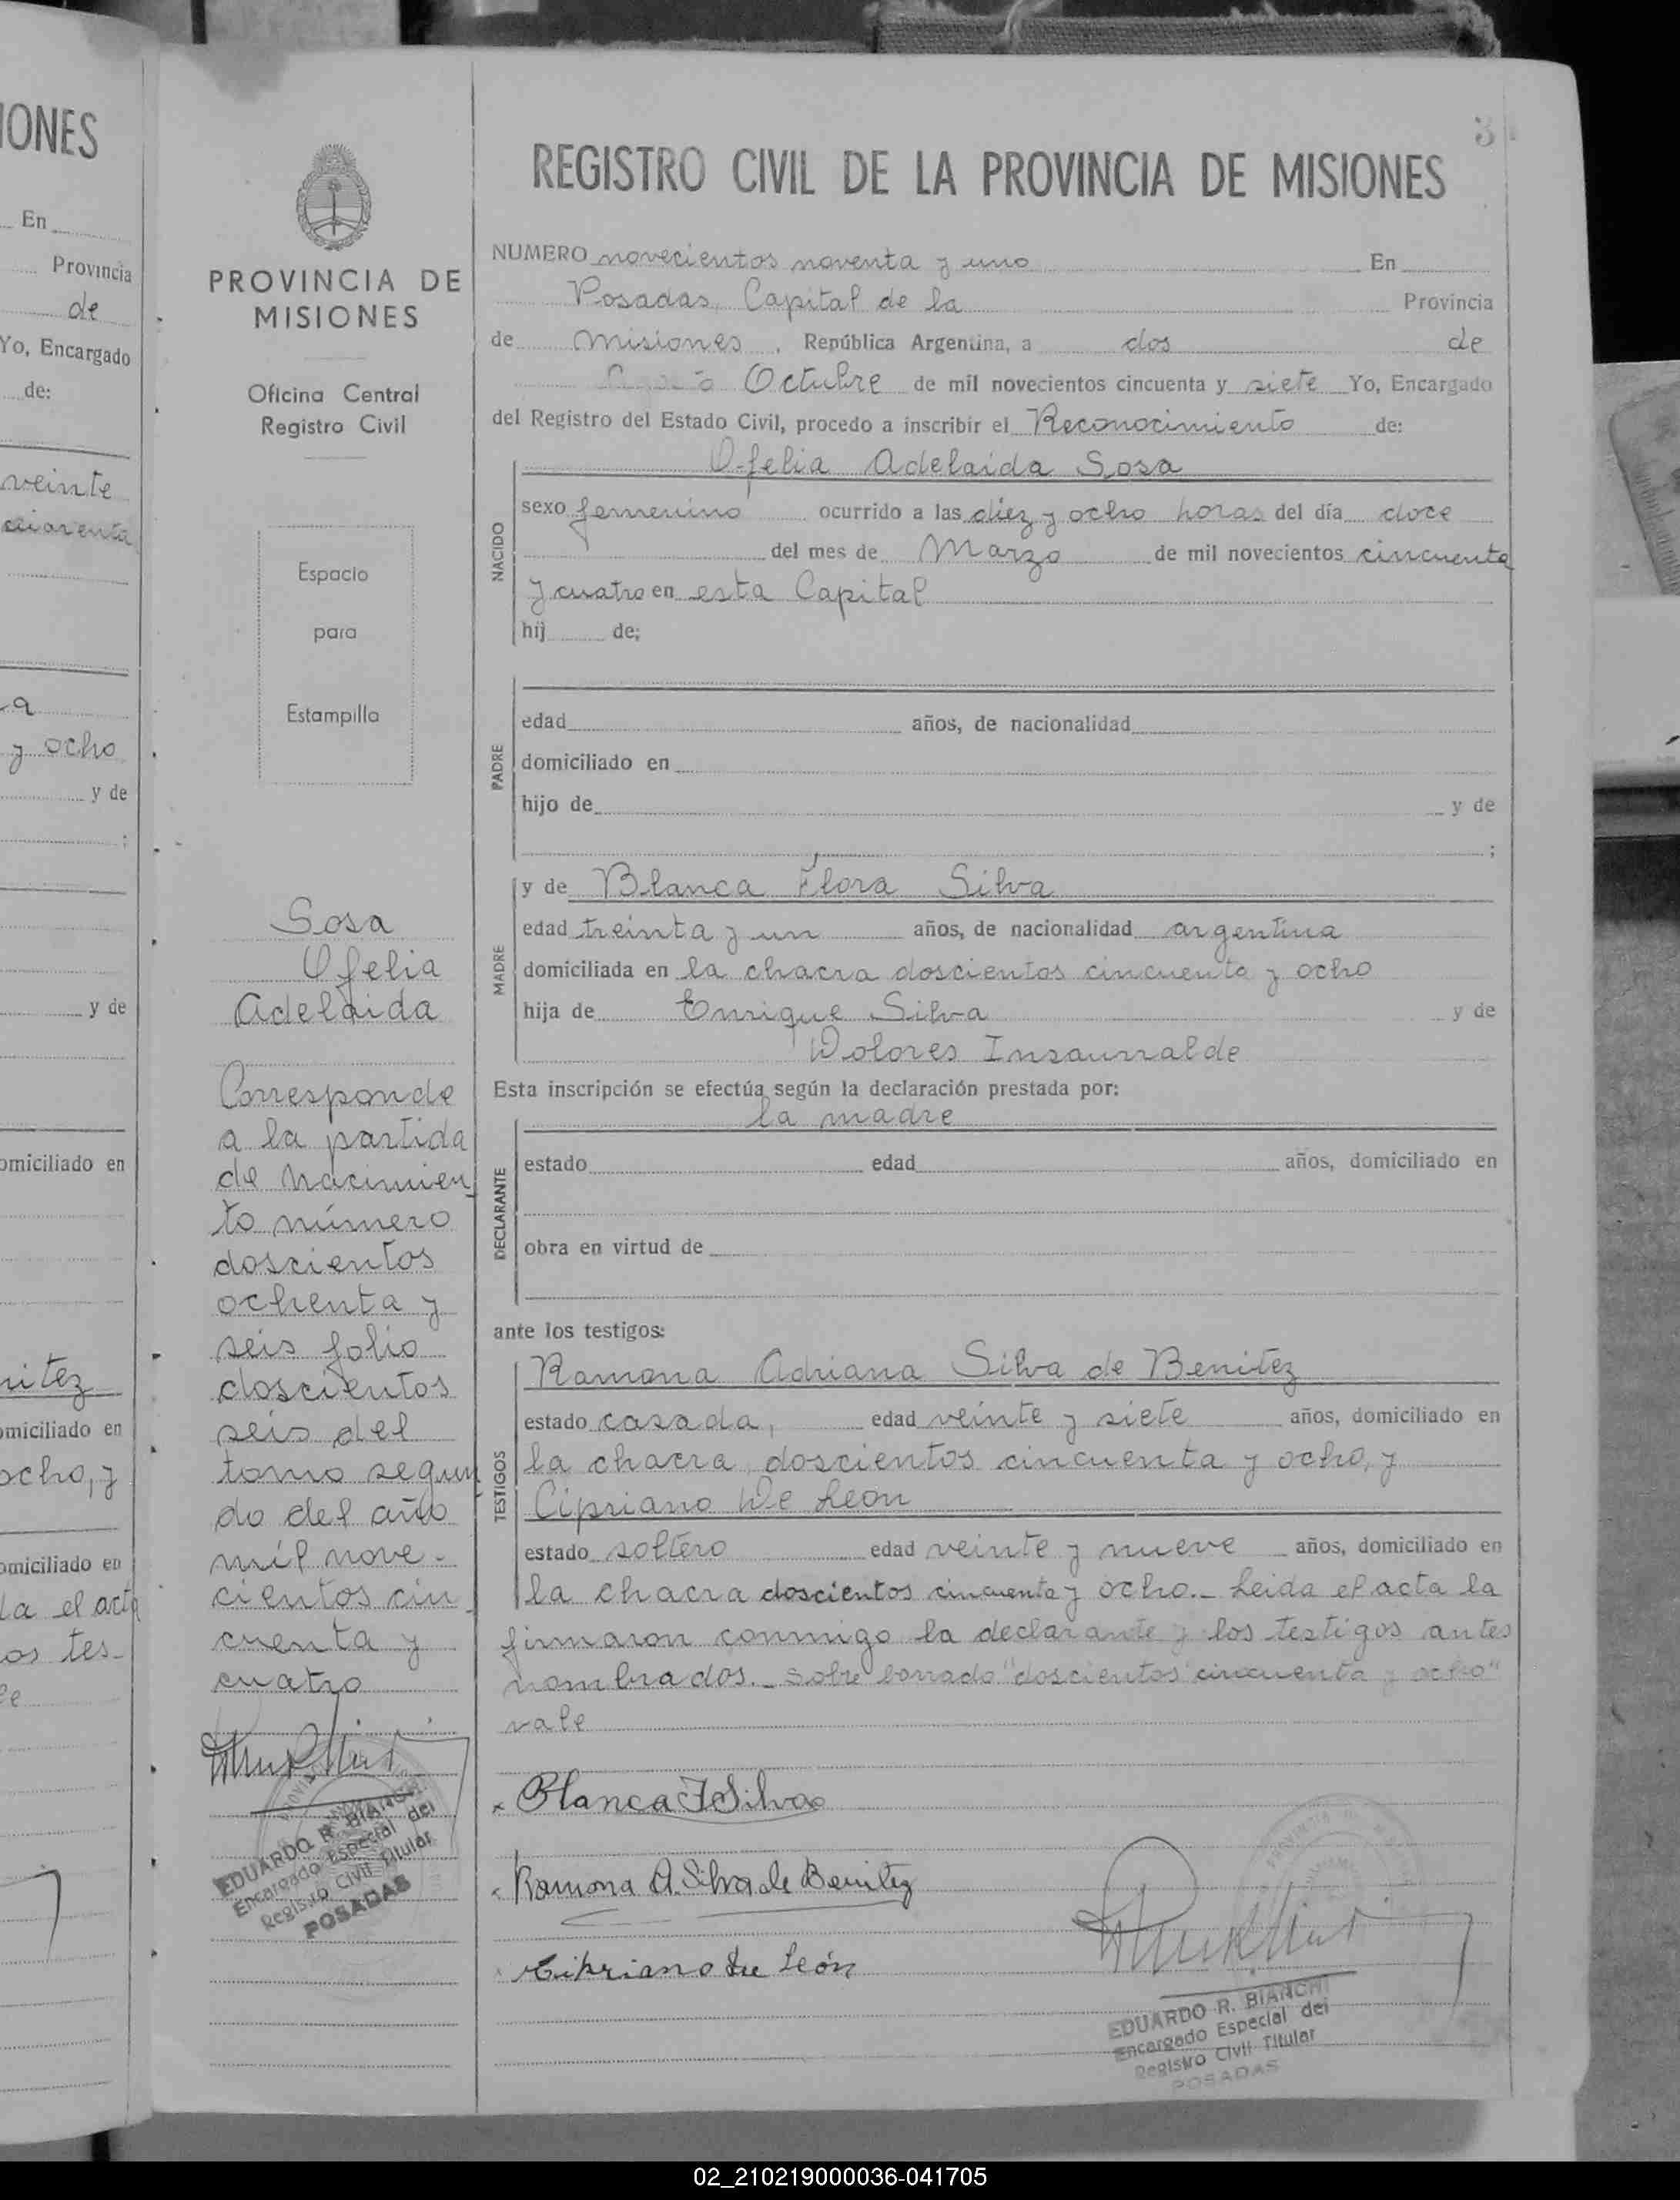 IONES
En
Provincia
de
Yo, Encargado
de:
veinte
cuarenta
a
y ocho
y de
;
y de
omiciliado en
nitez
omiciliado en
ocho, y
omiciliado en
la el acta
os tes-
PROVINCIA DE
MISIONES
Oficina Central
Registro Civil
Espacio
para
Estampilla
Sosa
Ofelia
Adelaida
Corresponde
a la partida
de Nacimien
to número
doscientos
ochenta y
seis folio
doscientos
seis del
tomo segun
do del año
mil nove-
cientos cin
cuenta y
cuatro
EDUARDO R. BIANCHI
Encargado Especial del
Registro Civil Titular
POSADAS
3
REGISTRO CIVIL DE LA PROVINCIA DE MISIONES
NUMERO novecientos noventa y uno En
Posadas, Capital de la Provincia
de Misiones , República Argentina, a dos de
Octubre de mil novecientos cincuenta y siete Yo, Encargado
del Registro del Estado Civil, procedo a inscribir el Reconocimiento de:
Ofelia Adelaida Sosa
NACIDO
sexo femenino ocurrido a las diez y ocho horas del día doce
del mes de Marzo de mil novecientos cincuenta
y cuatro en esta Capital
hij de;
PADRE
edad años, de nacionalidad
domiciliado en
hijo de y de
;
y de Blanca Flora Silva
MADRE
edad treinta y un años, de nacionalidad argentina
domiciliada en la chacra doscientos cincuenta y ocho
hija de Enrique Silva y de
Dolores Insaurralde
Esta inscripción se efectúa según la declaración prestada por:
la madre
DECLARANTE
estado edad años, domiciliado en
obra en virtud de
ante los testigos:
Ramona Adriana Silva de Benitez
TESTIGOS
estado casada, edad veinte y siete años, domiciliado en
la chacra doscientos cincuenta y ocho, y
Cipriano De León
estado soltero edad veinte y nueve años, domiciliado en
la chacra doscientos cincuenta y ocho.- Leida el acta la
firmaron conmigo la declarante y los testigos antes
nombrados.- Sobre borrado "doscientos cincuenta y ocho"
vale
Blanca F Silva
Ramona A. Silva de Benitez
Cipriano De León
EDUARDO R. BIANCHI
Encargado Especial del
Registro Civil Titular
POSADAS
02_210219000036-041705